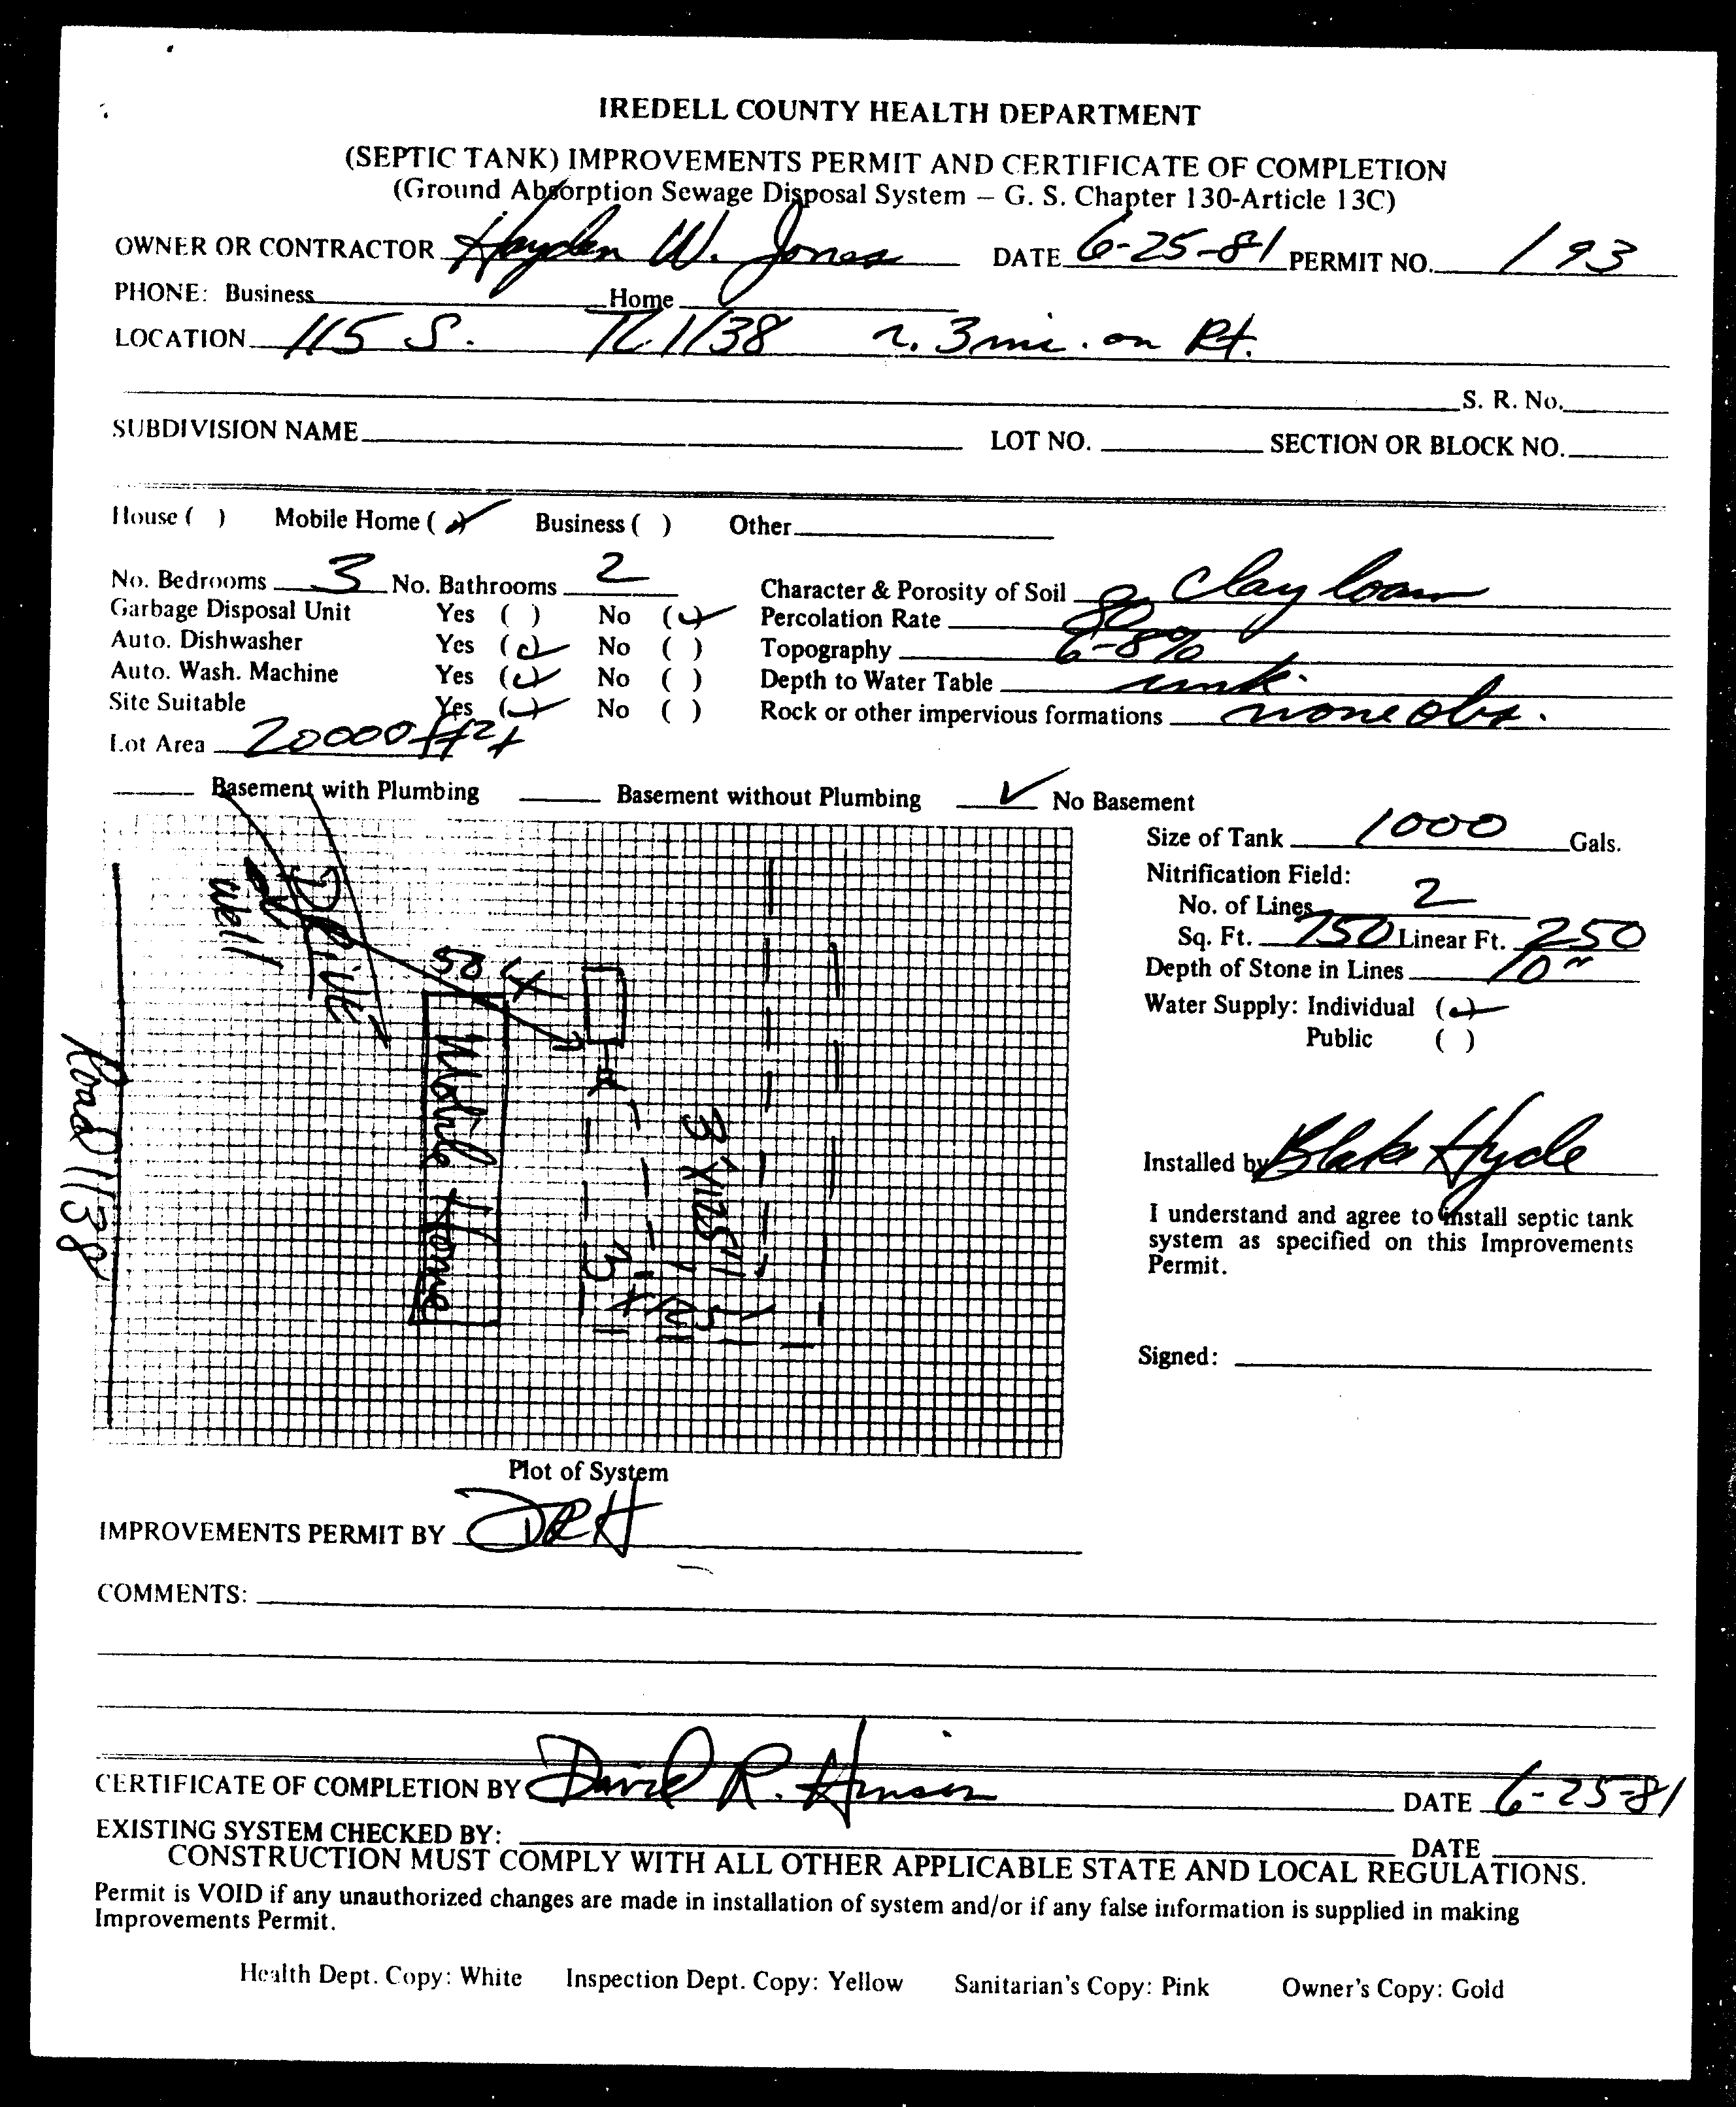 IREDELL COUNTY HEALTH DEPARTMENT
(SEPTIC TANK) IMPROVEMENTS PERMIT AND CERTIFICATE OF COMPLETION
(Ground Absorption Sewage Disposal System – G. S. Chapter 130-Article 13C)
OWNER OR CONTRACTOR Hayden W. Jones DATE 6-25-81 PERMIT NO. 193
PHONE: Business Home
LOCATION 115 S. TL 1138 r. 3 mi. on Rt.
S. R. No.
SUBDIVISION NAME LOT NO. SECTION OR BLOCK NO.
House ( ) Mobile Home (✓) Business ( ) Other
No. Bedrooms 3 No. Bathrooms 2 Character & Porosity of Soil clay loam
Garbage Disposal Unit Yes ( ) No (✓) Percolation Rate 80
Auto. Dishwasher Yes (✓) No ( ) Topography 6-8%
Auto. Wash. Machine Yes (✓) No ( ) Depth to Water Table unk.
Site Suitable Yes (✓) No ( ) Rock or other impervious formations none obs.
Lot Area 20000 ft2+
Basement with Plumbing Basement without Plumbing ✓ No Basement
Size of Tank 1000 Gals.
Nitrification Field:
No. of Lines 2
Sq. Ft. 750 Linear Ft. 250
Depth of Stone in Lines 10"
Water Supply: Individual (✓)
Public ( )
Installed by Blake Hyde
I understand and agree to install septic tank
system as specified on this Improvements
Permit.
Signed:
Road 1138
well
Drive
50
Mobile Home
3 X 125'
Plot of System
IMPROVEMENTS PERMIT BY DRH
COMMENTS:
CERTIFICATE OF COMPLETION BY David R. Hinson DATE 6-25-81
EXISTING SYSTEM CHECKED BY: DATE
CONSTRUCTION MUST COMPLY WITH ALL OTHER APPLICABLE STATE AND LOCAL REGULATIONS.
Permit is VOID if any unauthorized changes are made in installation of system and/or if any false information is supplied in making
Improvements Permit.
Health Dept. Copy: White Inspection Dept. Copy: Yellow Sanitarian's Copy: Pink Owner's Copy: Gold